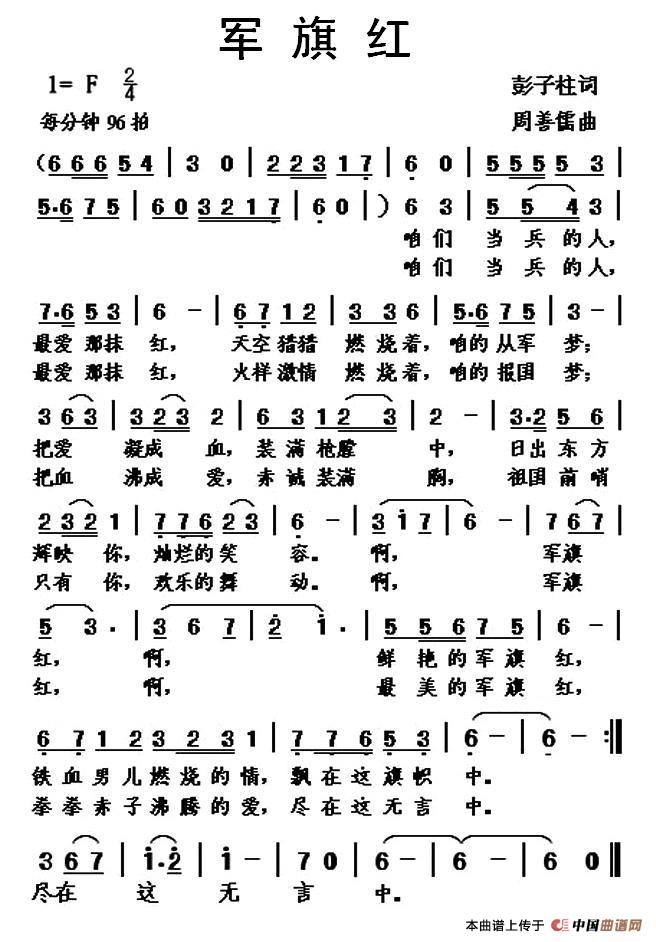 军旗红
1= F 2/4
彭子柱词
每分钟 96 拍
周善儒曲
(6 6 6 5 4 | 3 0 | 2 2 3 1 7 | 6 0 | 5 5 5 5 3 |
5·6 7 5 | 6 0 3 2 1 7 | 6 0 | ) 6 3 | 5 5 4 3 |
咱们 当 兵 的 人,
咱们 当 兵 的 人,
7·6 5 3 | 6 - | 6 7 1 2 | 3 3 6 | 5·6 7 5 | 3 - |
最爱 那抹 红, 天空 猎猎 燃 烧 着, 咱的 从军 梦;
最爱 那抹 红, 火样 激情 燃 烧 着, 咱的 报国 梦;
3 6 3 | 3 2 3 2 | 6 3 1 2 3 | 2 - | 3·2 5 6 |
把爱 凝成 血, 装 满 枪膛 中, 日出 东 方
把血 沸成 爱, 赤 诚 装满 胸, 祖国 前 哨
2 3 2 1 | 7 7 6 2 3 | 6 - | 3 1 7 | 6 - | 7 6 7 |
辉映 你, 灿烂的 笑 容。 啊, 军旗
只有 你, 欢乐的 舞 动。 啊, 军旗
5 3 · | 3 6 7 | 2 1 · | 5 5 6 7 5 | 6 - |
红, 啊, 鲜 艳 的 军 旗 红,
红, 啊, 最 美 的 军 旗 红,
6 7 1 2 3 2 3 1 | 7 7 6 5 3 | 6 - | 6 - :||
铁 血 男 儿 燃 烧 的 情, 飘 在 这 旗 帜 中。
拳 拳 赤 子 沸 腾 的 爱, 尽 在 这 无 言 中。
3 6 7 | 1·2 | 1 - | 7 0 | 6 - | 6 - | 6 0 ||
尽 在 这 无 言 中。
本曲谱上传于 中国曲谱网